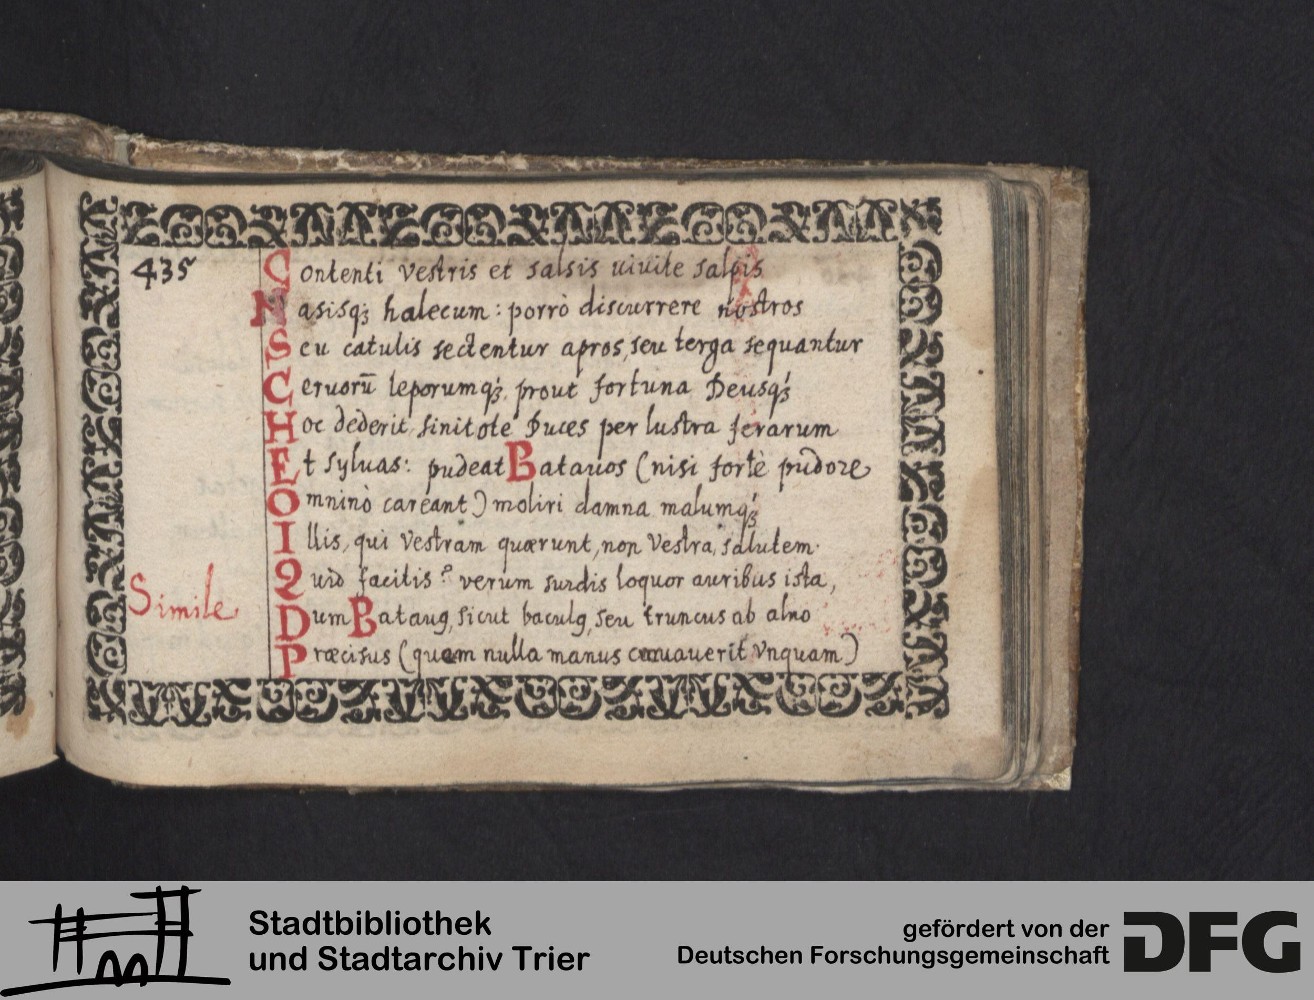 435
Contenti vestris et salsis uiuite salpis
Nasisqȝ halecum: porrò discurrere nostros
Seu catulis sectentur apros, seu terga sequantur
Ceruorū leporumqȝ, prout fortuna Deusqȝ
Hoc dederit sinitote Duces per lustra ferarum
Et syluas: pudeat Batauos (nisi fortè pudore
Omninò careant) moliri damna malumqȝ
Illis, qui vestram quærunt, non vestra, salutem.
Quid facitis? verum surdis loquor auribus ista,
Simile
Dum Batauꝰ, sicut baculꝰ, seu truncus ab alno
Præcisus (quem nulla manus cauauerit vnquam)
Stadtbibliothek
und Stadtarchiv Trier
gefördert von der
Deutschen Forschungsgemeinschaft
DFG